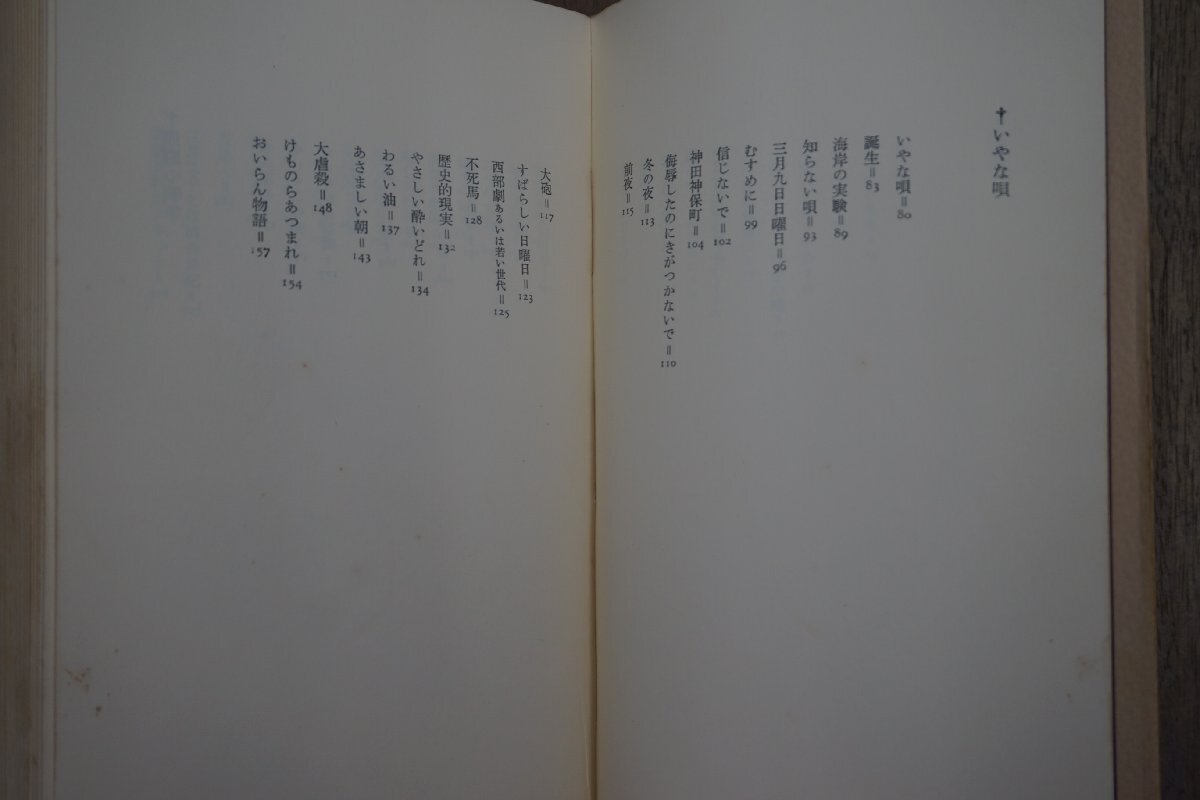 †いやな唄
いやな唄＝80
誕生＝83
海岸の実験＝89
知らない唄＝93
三月九日日曜日＝96
むすめに＝99
信じないで＝102
神田神保町＝104
侮辱したのにきがつかないで＝110
冬の夜＝113
前夜＝115
大砲＝117
すばらしい日曜日＝123
西部劇あるいは若い世代＝125
不死馬＝128
歴史的現実＝132
やさしい酔いどれ＝134
わるい油＝137
あさましい朝＝143
大虐殺＝148
けものらあつまれ＝154
おいらん物語＝157